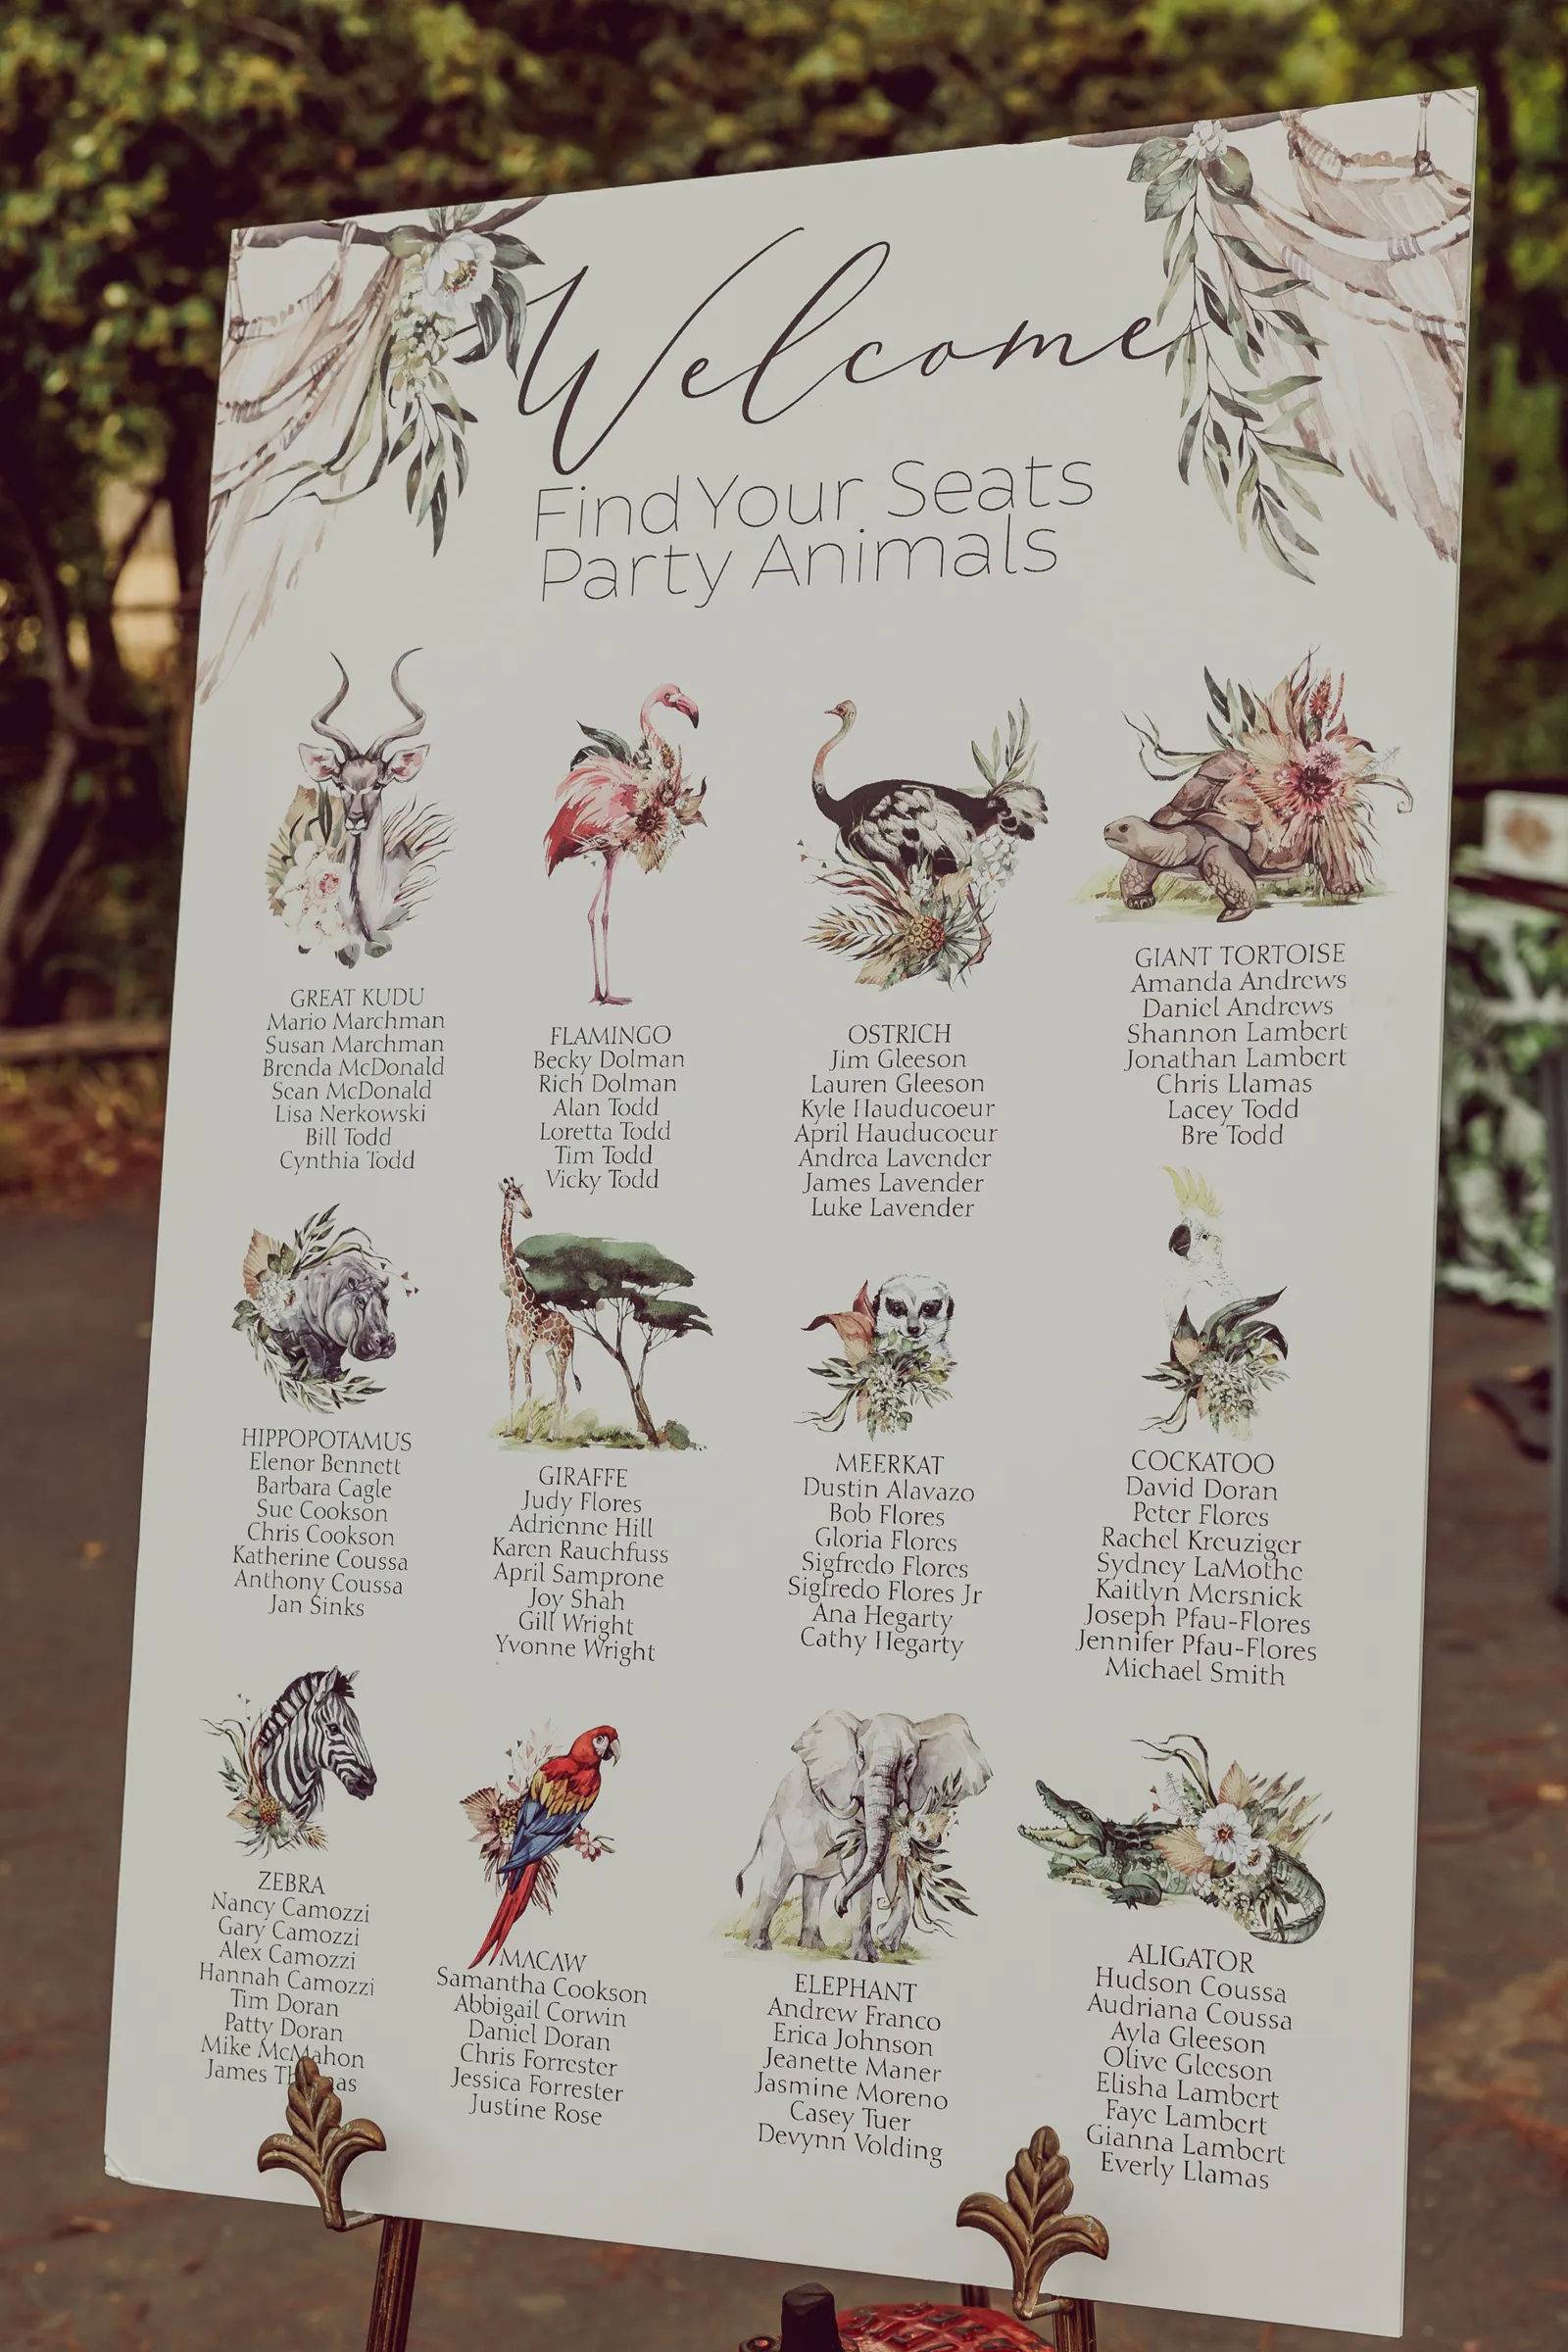 Welcome
Find Your Seats
Party Animals
GREAT KUDU
Mario Marchman
Susan Marchman
Brenda McDonald
Sean McDonald
Lisa Nerkowski
Bill Todd
Cynthia Todd
FLAMINGO
Becky Dolman
Rich Dolman
Alan Todd
Loretta Todd
Tim Todd
Vicky Todd
OSTRICH
Jim Gleeson
Lauren Gleeson
Kyle Hauducoeur
April Hauducoeur
Andrea Lavender
James Lavender
Luke Lavender
GIANT TORTOISE
Amanda Andrews
Daniel Andrews
Shannon Lambert
Jonathan Lambert
Chris Llamas
Lacey Todd
Bre Todd
HIPPOPOTAMUS
Elenor Bennett
Barbara Cagle
Sue Cookson
Chris Cookson
Katherine Coussa
Anthony Coussa
Jan Sinks
GIRAFFE
Judy Flores
Adrienne Hill
Karen Rauchfuss
April Samprone
Joy Shah
Gill Wright
Yvonne Wright
MEERKAT
Dustin Alavazo
Bob Flores
Gloria Flores
Sigfredo Flores
Sigfredo Flores Jr
Ana Hegarty
Cathy Hegarty
COCKATOO
David Doran
Peter Flores
Rachel Kreuziger
Sydney LaMothe
Kaitlyn Mersnick
Joseph Pfau-Flores
Jennifer Pfau-Flores
Michael Smith
ZEBRA
Nancy Camozzi
Gary Camozzi
Alex Camozzi
Hannah Camozzi
Tim Doran
Patty Doran
Mike McMahon
James
MACAW
Samantha Cookson
Abbigail Corwin
Daniel Doran
Chris Forrester
Jessica Forrester
Justine Rose
ELEPHANT
Andrew Franco
Erica Johnson
Jeanette Maner
Jasmine Moreno
Casey Tuer
Devynn Volding
ALIGATOR
Hudson Coussa
Audriana Coussa
Ayla Gleeson
Olive Gleeson
Elisha Lambert
Faye Lambert
Gianna Lambert
Everly Llamas